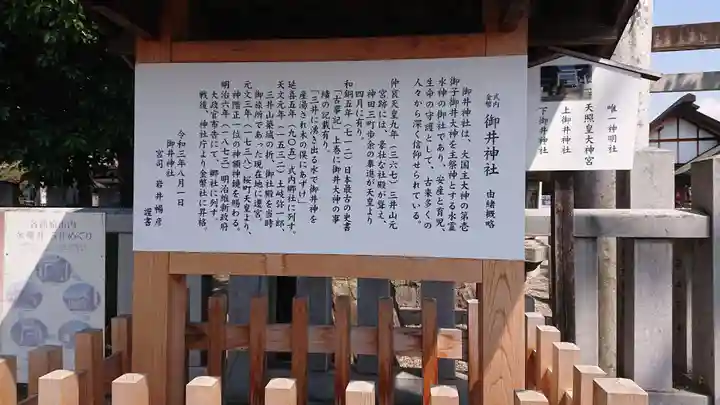 式内
金幣 御井神社 由緒概略
御井神社は、大国主大神の第壱
御子御井大神を主祭神とする水霊
水神の御社であり、安産と育児、
生命の守護として、古来多くの
人々から深く信仰せられている。
仲哀天皇九年(三六七)三井山元
宮跡には、豪壮な社殿が聳え、
神田三町歩余の奉進が天皇より
四月に有り。
和銅五年(七一二)日本最古の史書
「古事記」上巻に御井大神の事
績の記載有り。
「三井に湧き出る水で御井神を
産湯され木の俣にあずけ」
延喜五年(九〇五)式内郷社に列す。
天文元年(一五三〇)土岐弥一郎
三井山築城の折、御社殿を当時
御旅所であった現在地に遷宮。
元文三年(一七三八)桜町天皇より、
神階正一位の神額神鏡を賜わる。
明治六年(一八七三)明治維新政府
大政官布告にて、郷社に列す。
戦後、神社庁より金幣社に昇格。
令和三年八月一日
御井神社
宮司 岩井暢彦
謹書
唯一神明社
天照皇大神宮
上御井神社
下御井神社
各務原市内